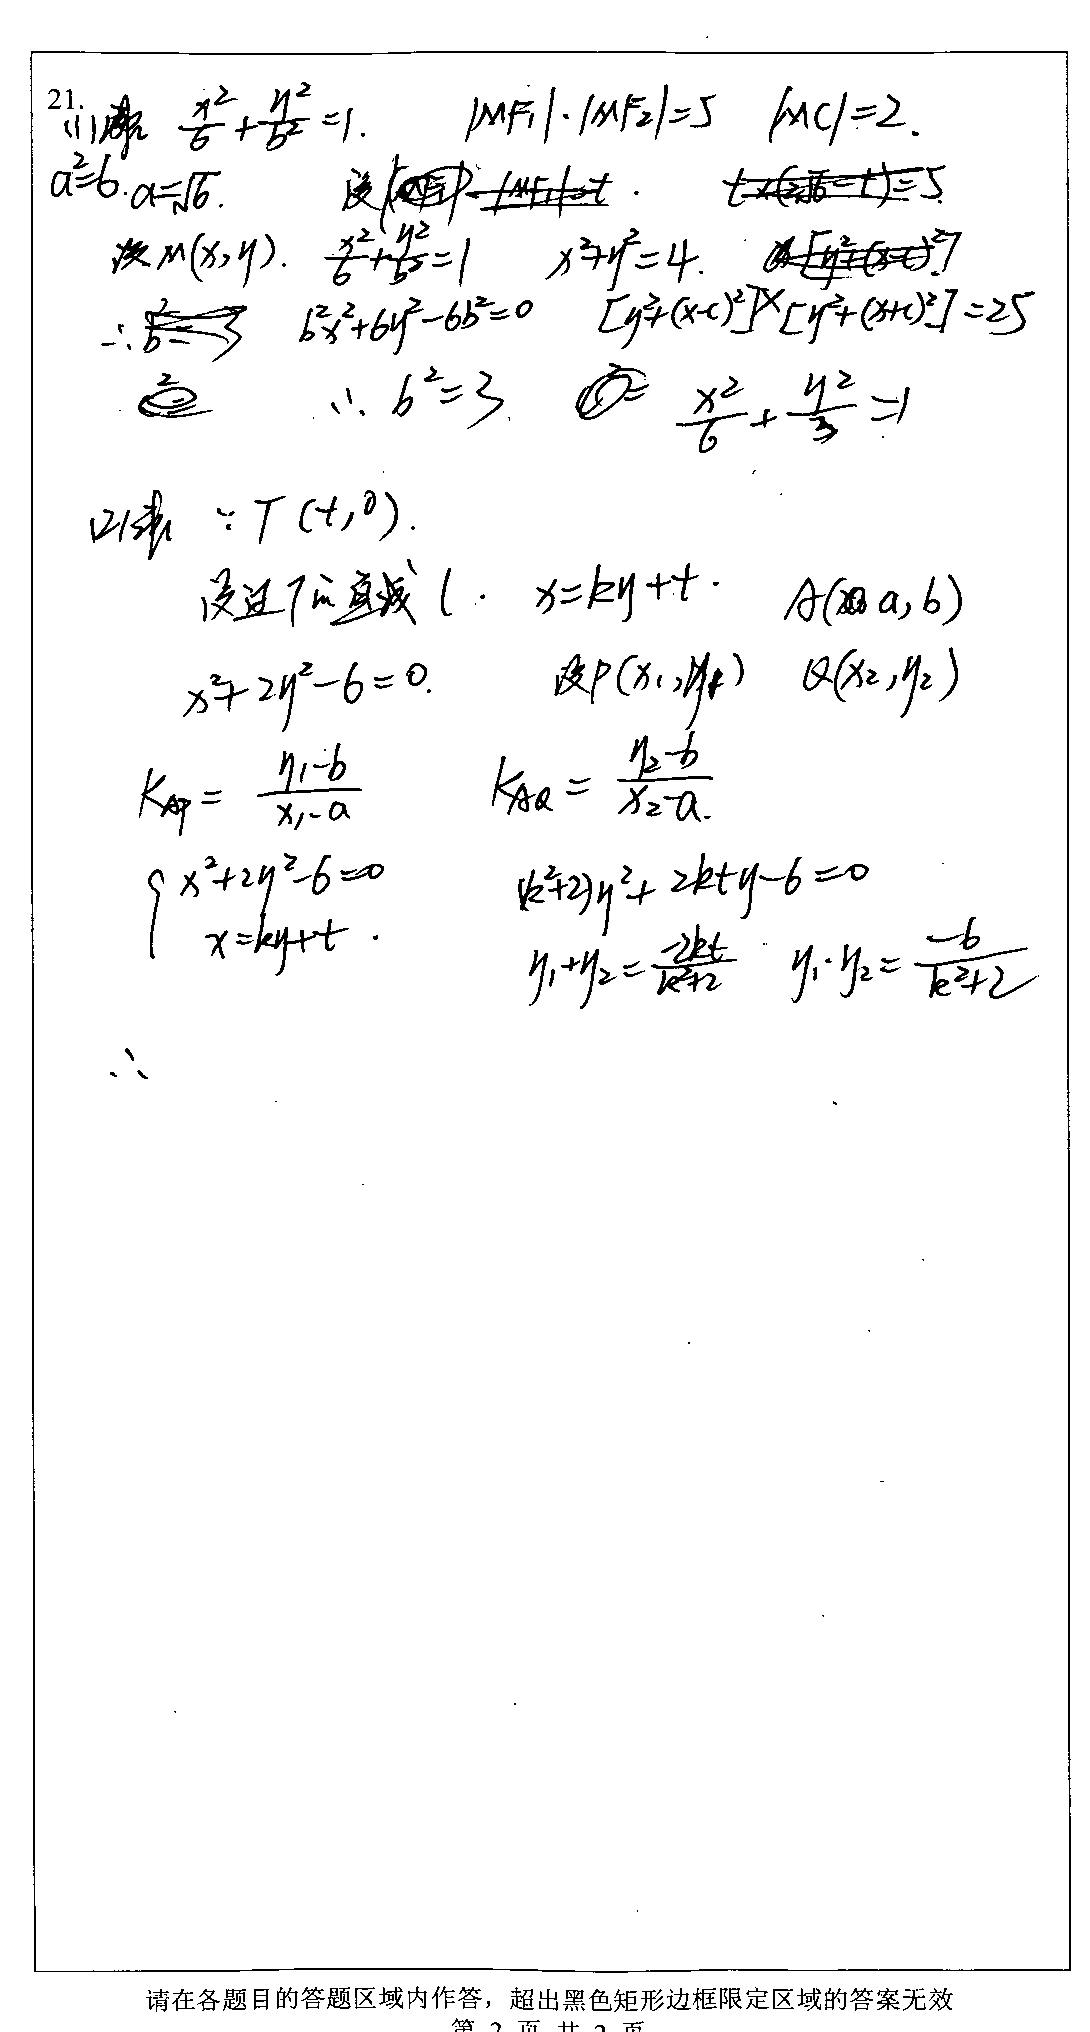 21.
(1)解: x²/6 + y²/b² = 1. |MF₁|·|MF₂|=5 |MC|=2.
a²=6. a=√6. 设
设M(x,y). x²/6 + y²/b² = 1 x²+y²=4.
∴ b²x²+6y²-6b²=0 [y²+(x-c)²]×[y²+(x+c)²]=25
∴ b²=3. x²/6 + y²/3 = 1
(2)解 ∵T(t,0).
设过T的直线l. x=ky+t. A(a,b)
x²+2y²-6=0. 设P(x₁,y₁) Q(x₂,y₂)
K_AP = (y₁-b)/(x₁-a) K_AQ = (y₂-b)/(x₂-a).
{x²+2y²-6=0 (k²+2)y²+2kty-6=0
x=ky+t.
y₁+y₂=-2kt/(k²+2) y₁·y₂=-6/(k²+2)
∴
请在各题目的答题区域内作答，超出黑色矩形边框限定区域的答案无效
第 2 页 共 2 页